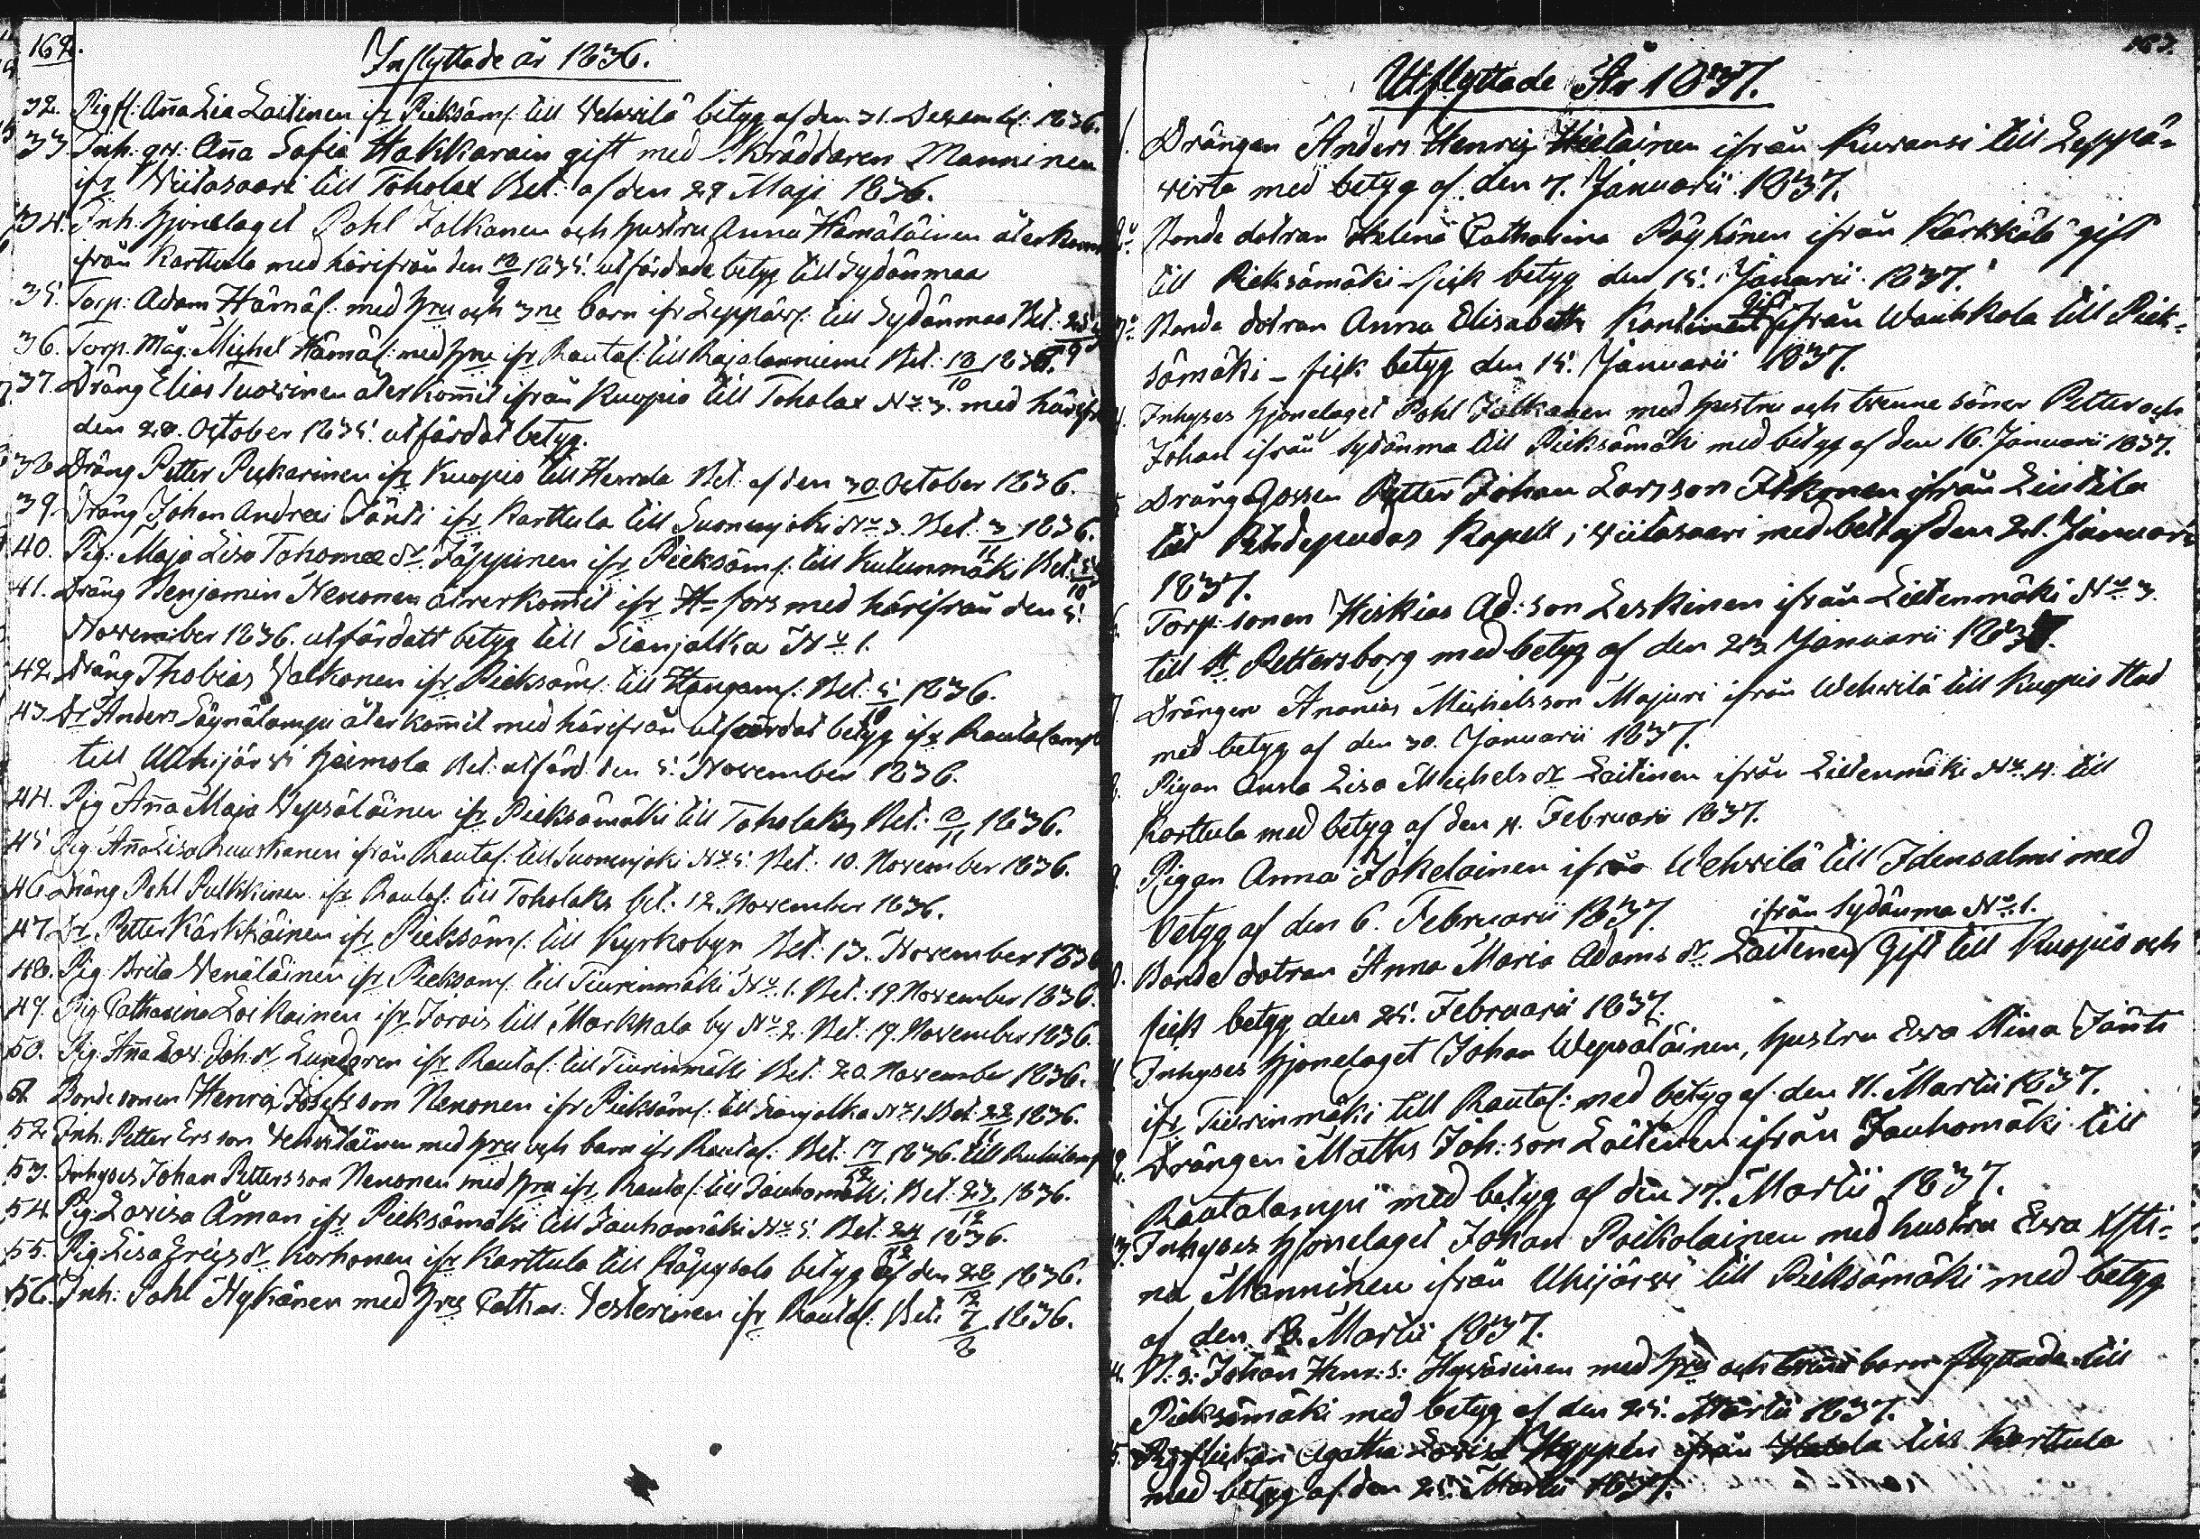 162.
Inflyttade år 1836.
32. Pigfl: Aña Lisa Laitinen ifr Pieksäm: till Vehvilä betyg af den 31. Decemb: 1836.
33. Inh. qv: Aña Sofia Hakkarain gift med Skräddaren Manninen
ifr Viitasaari till Toholax Bet: af den 29 Maji 1836.
34. Inh. hjonelaget Pohl Jalkanen och hustru Anna Hämäläinen återkom
ifrån Karttula med härifrån den 13/9 1835. utfärdade betyg till Sydänmaa
35. Torp: Adam Hämäl: med hru och 3ne barn ifr Leppäv: till Sydänmaa Bet:
36. Torp. Måg. Michel Hämäl: med hru ifr Rautal: till Rajalanniemi Bet: 13/10 1836.
37. Dräng Elias Tuovinen återkom̃it ifrån Kuopio till Toholax No 3. med härifr
den 28. October 1835. utfärdat betyg.
38. Dräng Petter Puckarinen ifr Kuopio till Herrala Bet: af den 30. October 1836.
39. Dräng Johan Andrea Jänti ifr Karttula till Suonenjoki No 3. Bet: 3/11 1836.
40. Pig: Maja Lisa Tahomae dr. Jäppinen ifr Pieksäm: till Kutunmäki Bet:
41. Dräng Benjamin Nenonen återkom̃it ifr H-fors med härifrån den 5.
November 1836. utfärdatt betyg till Sianjalka No 1.
42. Dräng Thobias Valkonen ifr Pieksäm: till Hangam: Bet: 5/9 1836.
43. Dr Anders Säynälampi återkom̃it med härifrån utfärdat betyg ifr Rautalamp
till Uhijärvi Heimola Bet: utfärd: den 5. November 1836.
44. Pig Aña Maja Vepsäläinen ifr Pieksämäki till Toholaks Bet: 8/11 1836.
45. Pig: Aña Lisa Ruuskanen ifrån Rautal: till Suonenjoki No 5. Bet: 10. November 1836.
46. Dräng Pohl Pulkkinen ifr Rautal: till Toholaks bet: 12. November 1836.
47. Dr Petter Kärkkäinen ifr Pieksäm: till Kyrkobyn Bet: 13. November 1836
48. Pig: Brita Venäläinen ifr Pieksäm: till Tiurinmäki No 1. Bet: 19. November 1836.
49. Pig Catharina Loikainen ifr Jorois till Markkala by No 2. Bet: 19. November 1836.
50. Pig: Aña Lov. Joh. dr Lundgren ifr Rautal: till Tiurinmäki Bet: 20. November 1836.
51. Bondesonen Henric Josefsson Nenonen ifr Pieksäm: till Sianjalka No 1. Bet: 22/11 1836.
52. Inh. Petter Ersson Vehviläinen med hru och barn ifr Rautal: Bet: 17/12 1836. till
53. Inhyses Johan Pettersson Nenonen med hru ifr Rautal: till Jauhomäki. Bet: 23/12 1836.
54. Pig: Lovisa Åman ifr Pieksämäki till Jauhomäki No 5. Bet: 24/12 1836.
55. Pig: Lisa Greijs dr Korhonen ifr Karttula till Käpysalo betyg af den 28/12 1836.
56. Inh: Pohl Hykönen med hru Cathar: Vesterinen ifr Rautal: Bet: 7/8 1836.
163.
Utflyttade År 1837.
1. Drängen Anders Henrig Hielainen ifrån Kuvansi till Leppä-
virta med betyg af den 7. Januarii 1837.
2. Bonde dotran Helena Catharina Pöyhönen ifrån Kärkkälä gift
till Pieksämäki fick betyg den 15. Januarii 1837.
3. Bonde dotran Anna Elisabeth Kantinen gift ifrån Vauhkola till Piek-
sämäki - fick betyg den 15. Januarii 1837.
4. Inhyses hjonelaget Pohl Jalkanen med hustru och tvenne söner Petter och
Johan ifrån Sydänma till Pieksämäki med betyg af den 16. Januarii 1837.
5. Dräng Gossen Petter Johan Larsson Ikkonen ifrån Lintila
till Pihdepudas Kapell i Viitasaari med bet: af den 21. Januarii
1837.
6. Torp: sonen Hiskias Ad: son Leskinen ifrån Lietenmäki No 3.
till St. Pettersborg med betyg af den 23 Januarii 1837.
7. Drängen Ananias Michelsson Majuri ifrån Vehvilä till Kuopio Stad
med betyg af den 30. Januarii 1837.
8. Pigan Anna Lisa Michels dr Laitinen ifrån Lietenmäki No 4. till
Karttula med betyg af den 4. Februari 1837.
9. Pigan Anna Jokelainen ifrån Vehvilä till Idensalmi med
betyg af den 6. Februarii 1837.
ifrån Sydänma No 1.
10. Bonde dotran Anna Maria Adams dr Laitinen Gift till Kuopio och
fick betyg den 25. Februarii 1837.
11. Inhyses hjonelaget Johan Wepsäläinen, hustru Eva Stina Jänti
ifr Tiurinmäki till Rautal: med betyg af den 11. Martii 1837.
12. Drängen Maths Joh: son Laitinen ifrån Jauhomäki till
Rautalampi med betyg af den 17. Martii 1837.
13. Inhyses hjonelaget Johan Poikolainen med hustru Eva Sti-
na Manninen ifrån Uhijärvi till Pieksämäki med betyg
af den 18. Martii 1837.
14. N: s: Johan Henr: s: Hyvärinen med hru och barn flyttade till
Pieksämäki med betyg af den 25. Martii 1837.
15. Pigflickan Agatha Lovisa Hyppén ifrån till Karttula
med betyg af den 25. Martii 1837.